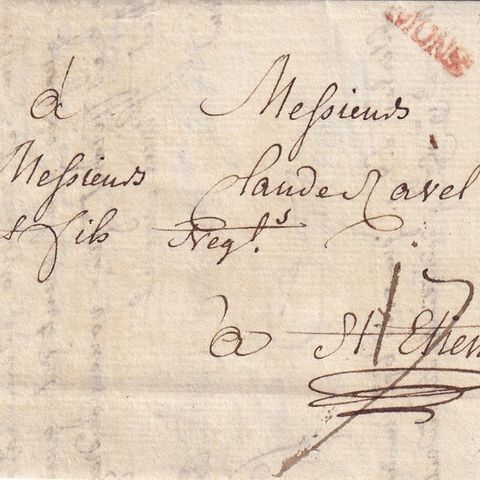 MONS
à Messieurs
Messieurs Claude Ravel
& fils Negt.s
à St Etien
17